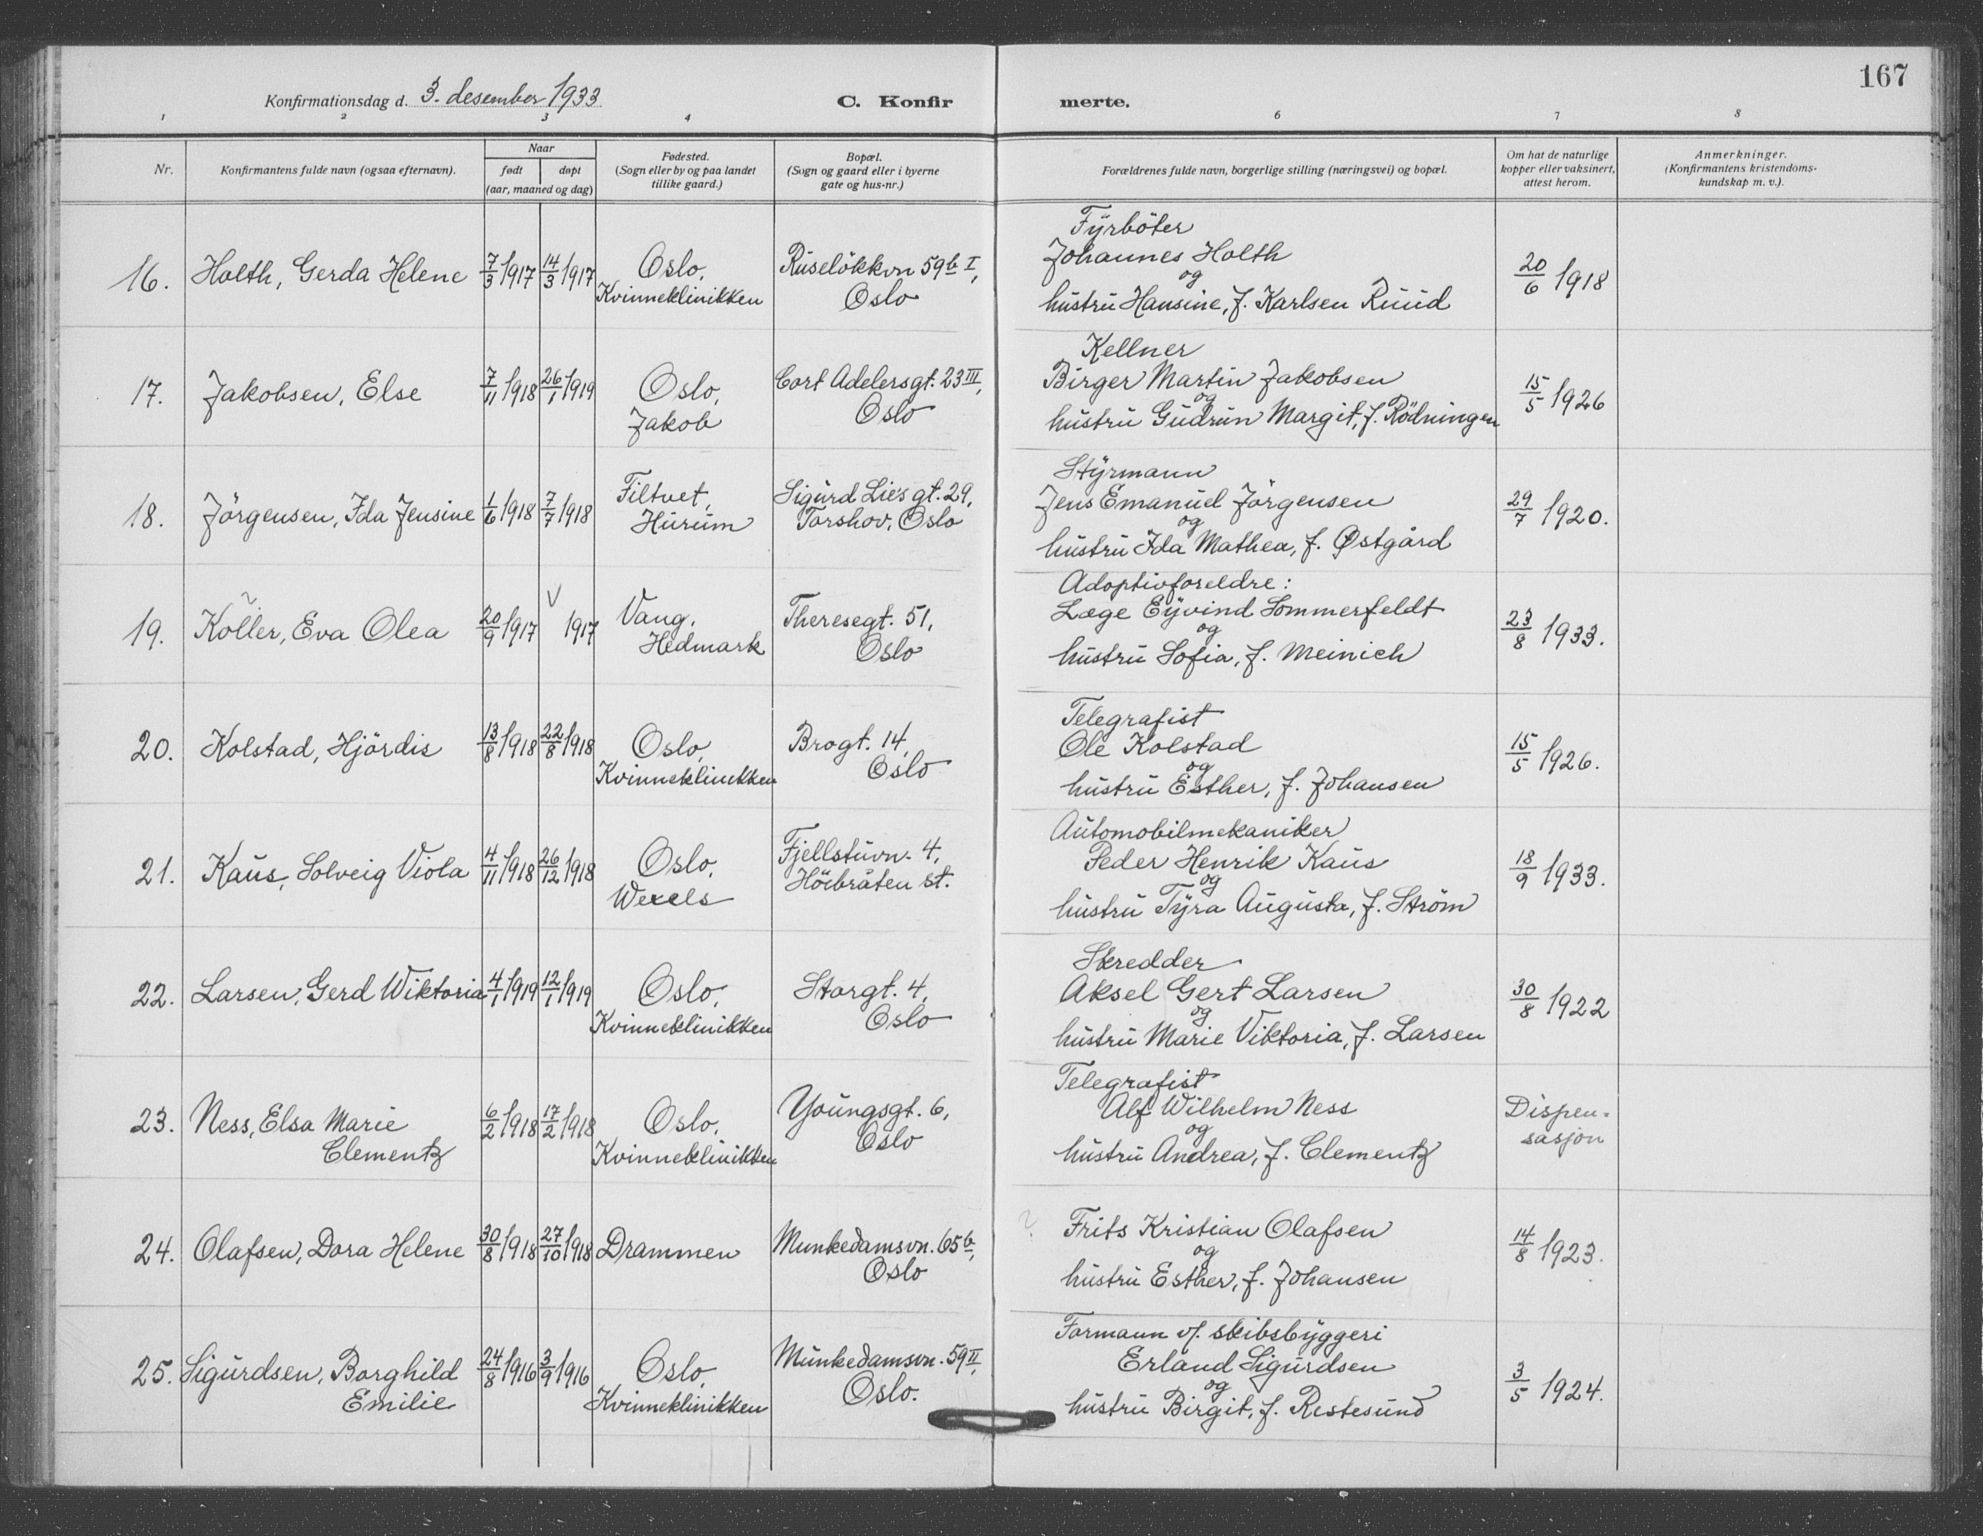 167
Konfirmationsdag d. 3. desember 1933
C. Konfir merte.
1 2 3 4 6 7 8
Nr.
Konfirmantens fulde navn (ogsaa efternavn).
Naar
født døpt
(aar, maaned og dag)
Fødested.
(Sogn eller by og paa landet
tillike gaard.)
Bopæl.
(Sogn og gaard eller i byerne
gate og hus-nr.)
Forældrenes fulde navn, borgerlige stilling (næringsvei) og bopæl.
Om hat de naturlige
kopper eller vaksinert,
attest herom.
Anmerkninger.
(Konfirmantens kristendoms-
kundskap m. v.).
16. Holth, Gerda Helene 7/3 1917 14/3 1917
Oslo,
Kvinneklinikken
Ruseløkkvn 59b I,
Oslo
Fyrbøter
Johannes Holth
og
hustru Hansine, f. Karlsen Ruud
20/6 1918
17. Jakobsen, Else 7/11 1918 26/1 1919
Oslo,
Jakob
Cort Adelersgt. 23 III,
Oslo
Kellner
Birger Martin Jakobsen
og
hustru Gudrun Margit, f. Rødningen
15/5 1926
18. Jörgensen, Ida Jensine 1/6 1918 7/7 1918
Filtvet,
Hurum
Sigurd Lies gt. 29,
Torshov, Oslo
Styrmann
Jens Emanuel Jörgensen
og
hustru Ida Mathea, f. Østgård
29/7 1920.
19. Köller, Eva Olea 20/9 1917 V 1917
Vang,
Hedmark
Theresegt. 51,
Oslo
Adoptivforeldre:
Læge Eyvind Sommerfeldt
og
hustru Sofia, f. Meinich
23/8 1933.
20. Kolstad, Hjördis 13/8 1918 22/8 1918
Oslo,
Kvinneklinikken
Brogt. 14,
Oslo
Telegrafist
Ole Kolstad
og
hustru Esther, f. Johansen
15/5 1926.
21. Kaus, Solveig Viola 4/11 1918 26/12 1918
Oslo,
Wexels
Fjellstuvn. 4,
Höibråten st.
Automobilmekaniker
Peder Henrik Kaus
og
hustru Tyra Augusta, f. Ström
18/9 1933.
22. Larsen, Gerd Wiktoria 4/1 1919 12/1 1919
Oslo,
Kvinneklinikken
Storgt. 4,
Oslo
Skredder
Aksel Gert Larsen
og
hustru Marie Viktoria, f. Larsen
30/8 1922
23. Ness, Elsa Marie
Clementz
6/2 1918 17/2 1918
Oslo,
Kvinneklinikken
Youngsgt. 6,
Oslo
Telegrafist
Alf Wilhelm Ness
og
hustru Andrea, f. Clementz
Dispen-
sasjon
24. Olafsen, Dora Helene 30/8 1918 27/10 1918
Drammen
Munkedamsvn. 65b,
Oslo
? Frits Kristian Olafsen
og
hustru Esther, f. Johansen
14/8 1923.
25. Sigurdsen, Borghild
Emilie
24/8 1916 3/9 1916
Oslo,
Kvinneklinikken
Munkedamsvn. 59 II,
Oslo.
Formann v/. skibsbyggeri
Erland Sigurdsen
og
hustru Birgit, f. Restesund
3/5 1924.